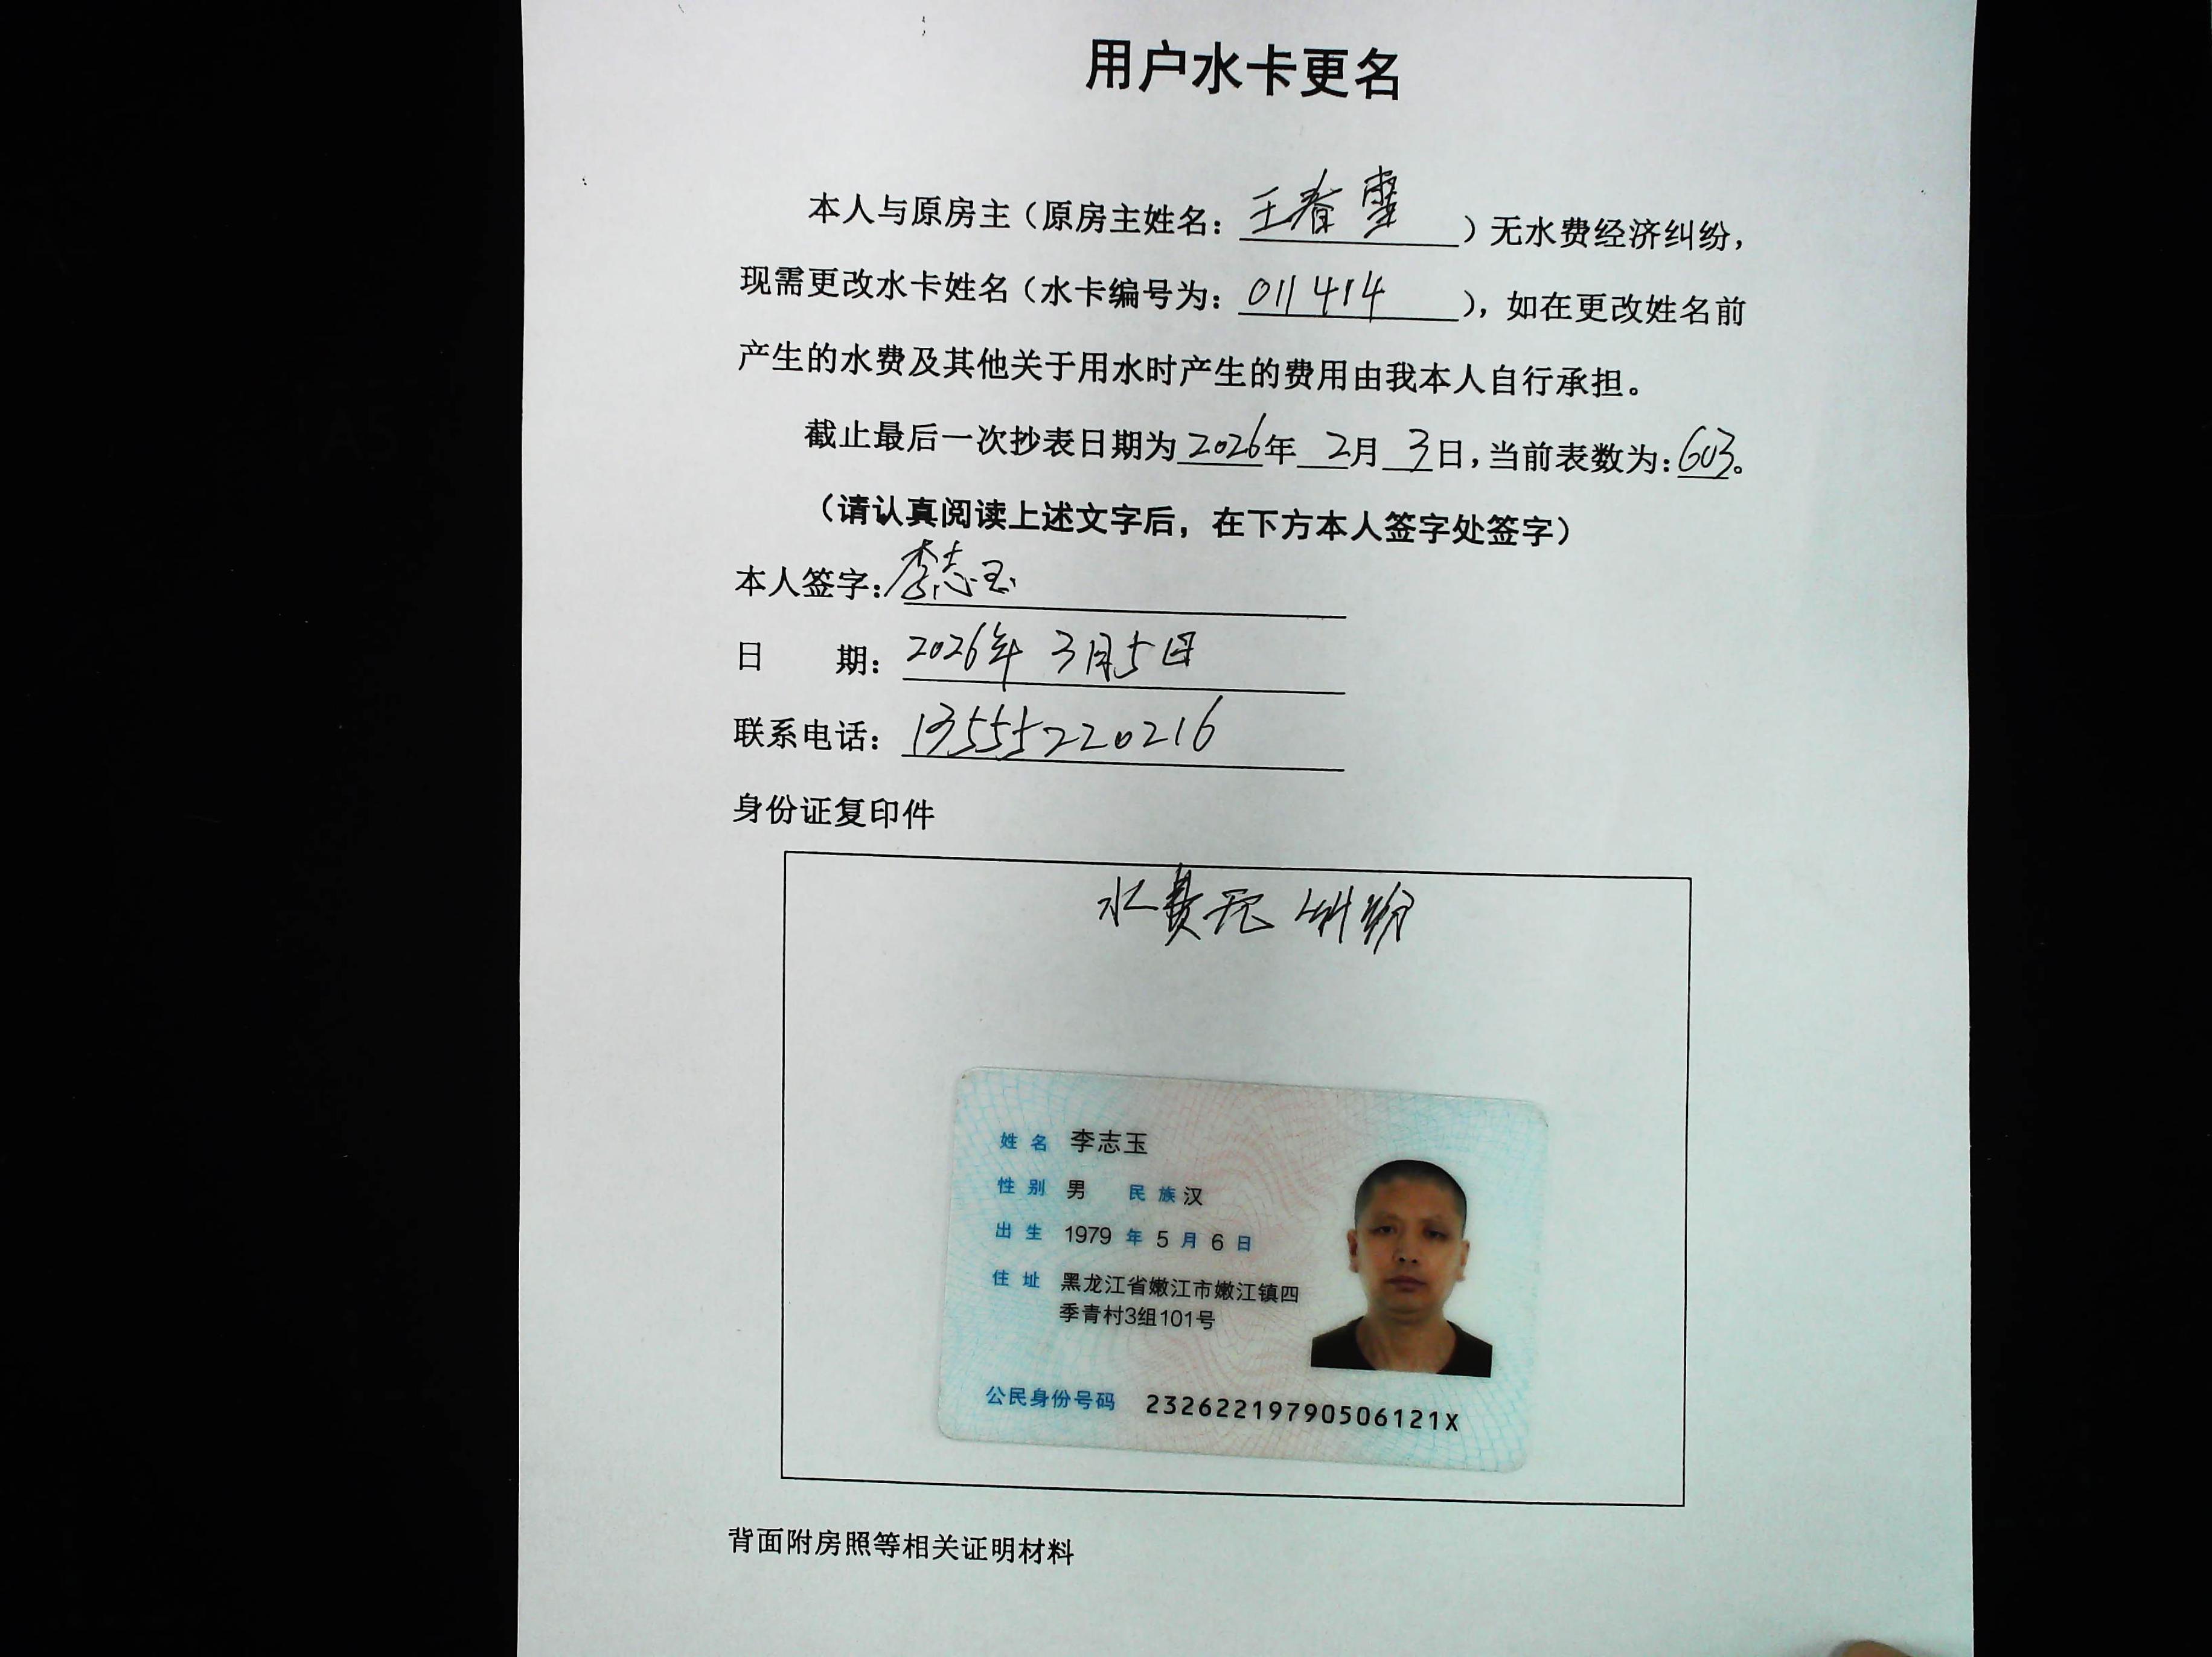 用户水卡更名
本人与原房主（原房主姓名：王春）无水费经济纠纷，
现需更改水卡姓名（水卡编号为：011414），如在更改姓名前
产生的水费及其他关于用水时产生的费用由我本人自行承担。
截止最后一次抄表日期为2026年2月3日，当前表数为：603。
（请认真阅读上述文字后，在下方本人签字处签字）
本人签字：李志玉
日 期：2026年3月5日
联系电话：13555220216
身份证复印件
水费无纠纷
姓名 李志玉
性别 男 民族 汉
出生 1979 年 5 月 6 日
住址 黑龙江省嫩江市嫩江镇四
季青村3组101号
公民身份号码 23262219790506121X
背面附房照等相关证明材料